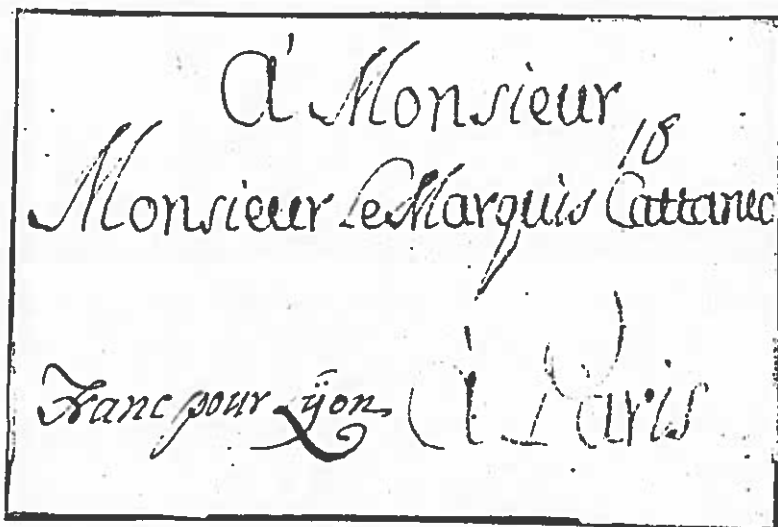 A' Monsieur
18
Monsieur le Marquis Cattaneo
Franc pour Lÿon À Paris